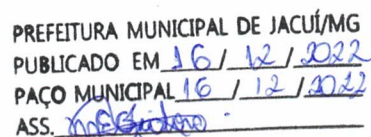 PREFEITURA MUNICIPAL DE JACUÍ/MG
PUBLICADO EM 16 / 12 / 2022
PAÇO MUNICIPAL 16 / 12 / 2022
ASS.